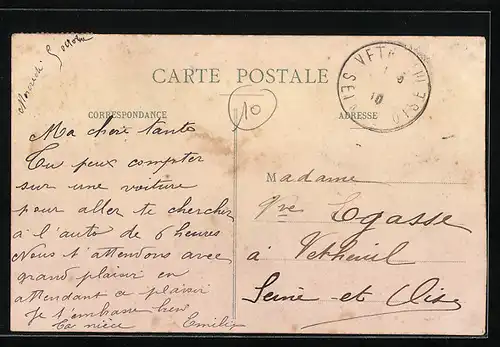 Mercredi 5 octobre
CARTE POSTALE
CORRESPONDANCE
ADRESSE
10
VETHEUIL
SEINE ET OISE
10
Ma chère tante
Tu peux compter
sur une voiture
pour aller te chercher
à l'auto de 6 heures
Nous t'attendons avec
grand plaisir en
attendant ce plaisir
Je t'embrasse bien
Ta nièce Emilie
Madame
Vve Egasse
à Vetheuil
Seine et Oise